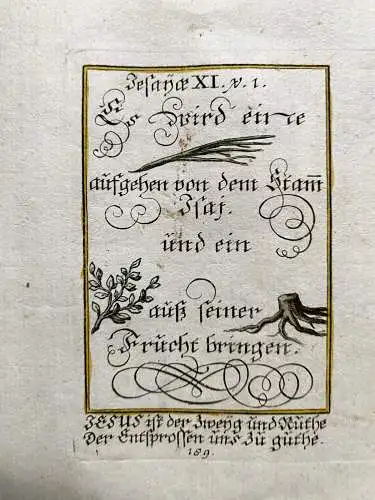 Jesaÿæ XI. v. 1.
Es wird eine
aufgehen von dem Stam̅
Isaj.
und ein
auß seiner
Frucht bringen.
JESUS ist der Zweÿg und Ruthe
Der Entsprossen uns zu guthe.
189.